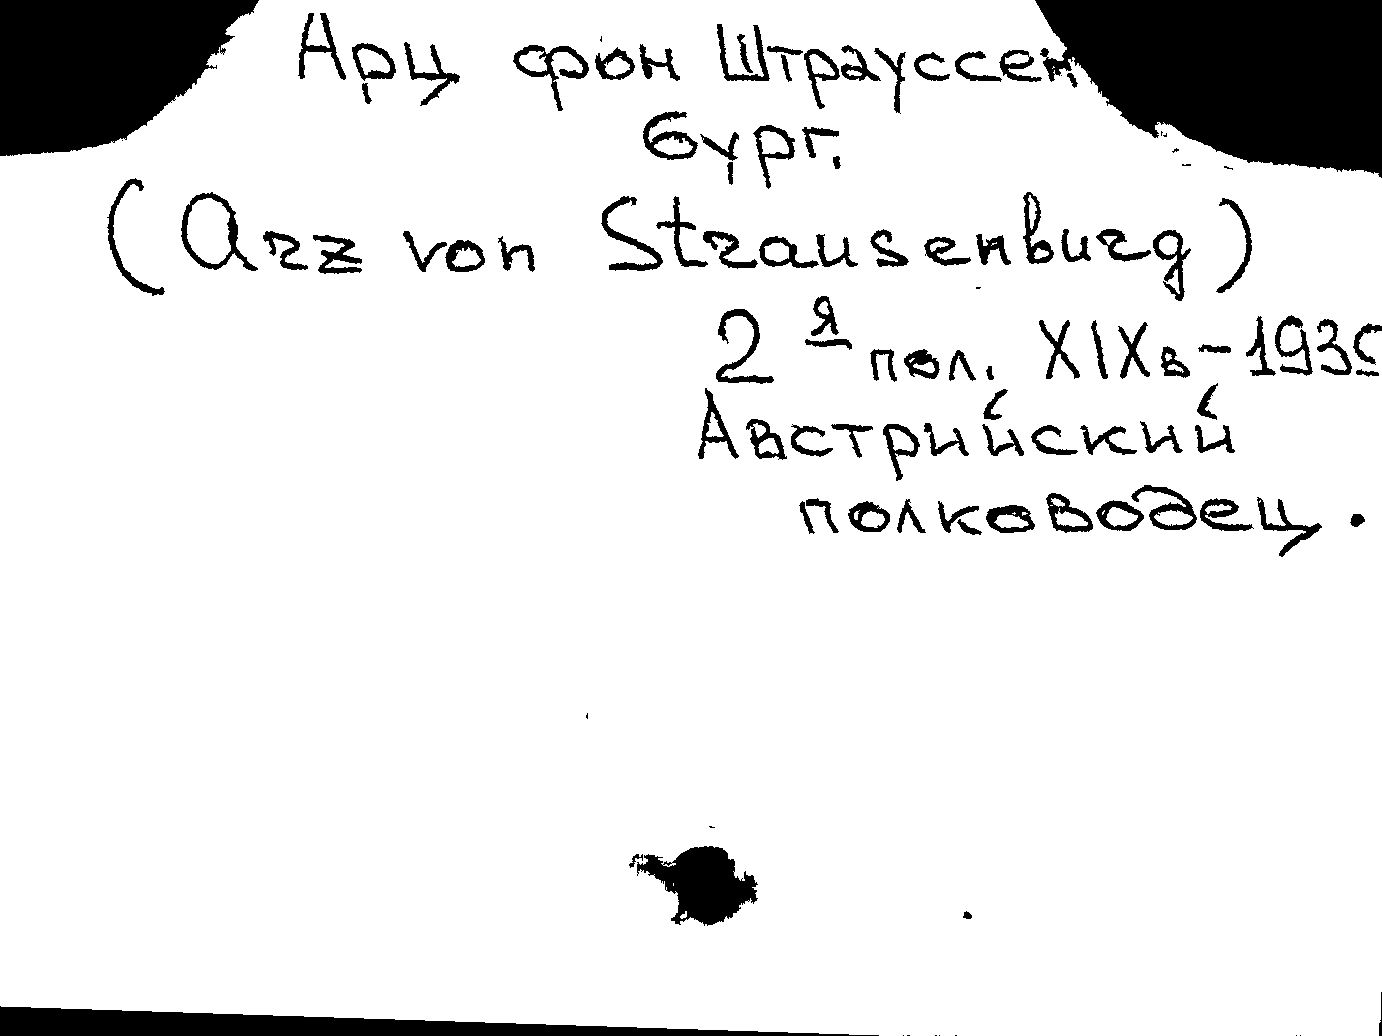 Арц фон Штрауссен
бург.
(Arz von Strausenburg)
2я пол. XIXв-1935
Австрийский
полководец.